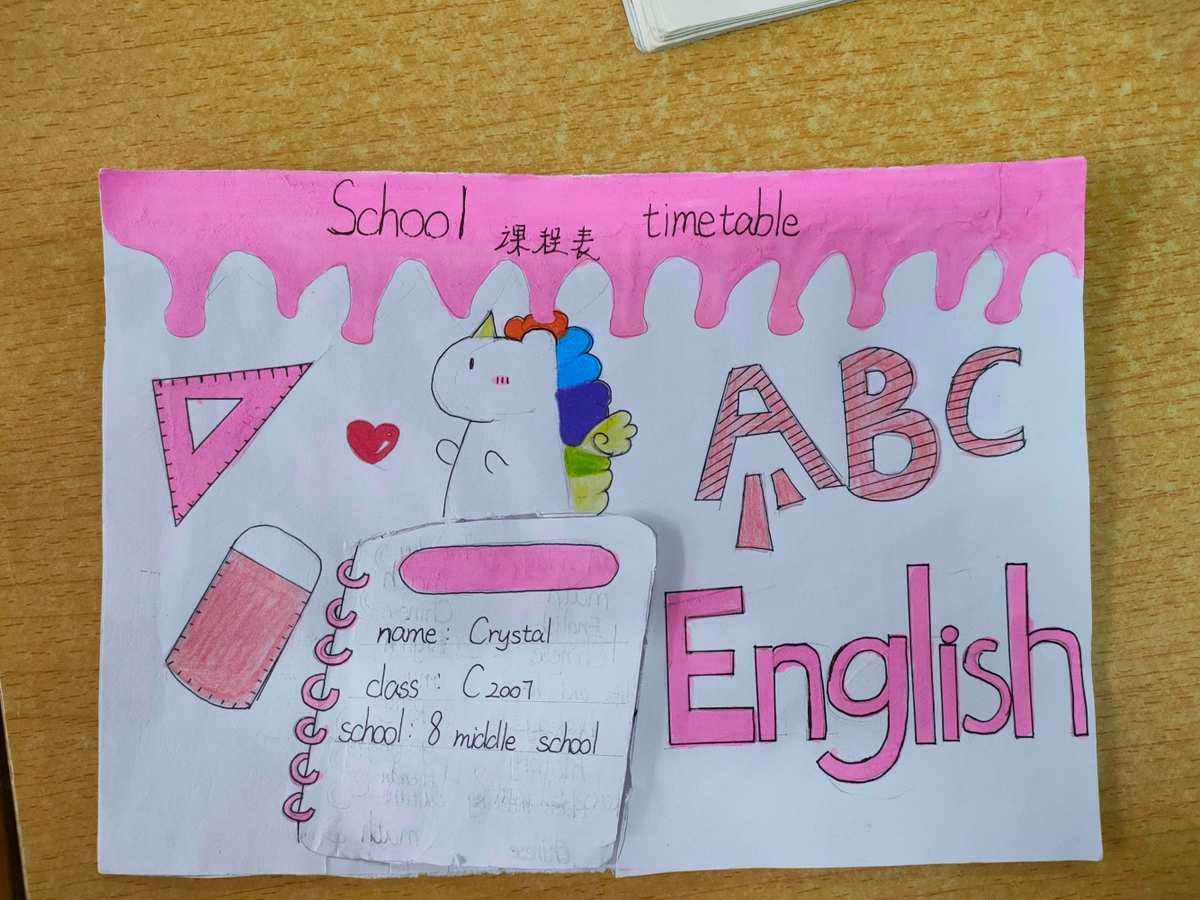 School 课程表 timetable
ABC
name: Crystal
class: C2007
school: 8 middle school
English